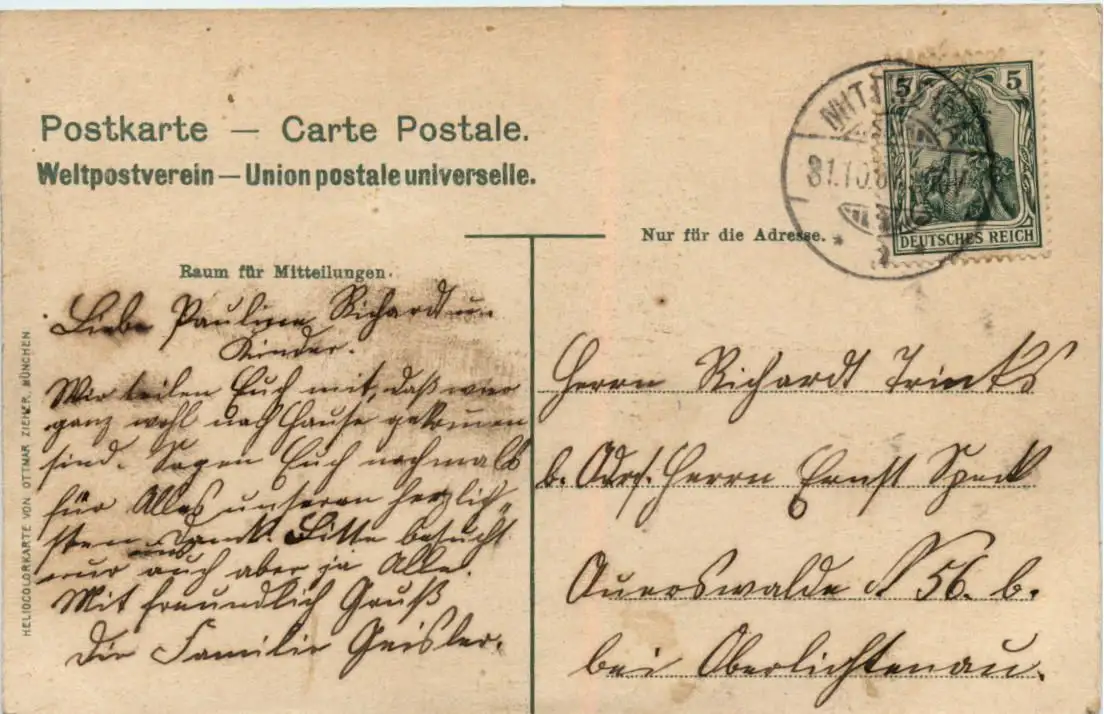 Postkarte — Carte Postale.
Weltpostverein — Union postale universelle.
Nur für die Adresse.
Raum für Mitteilungen.
5 5
DEUTSCHES REICH
31.10.
Liebe Pauline, Richardt u.
Kinder.
Wir teilen Euch mit, daß wir
ganz wohl nach Hause gekommen
sind. Sagen Euch nochmals
für Alles unseren herzlich-
sten Dank. Bitte besucht
uns
nur auch aber ja Alle.
Mit freundlich Gruß
Die Familie Geisler.
Herrn Richardt Trinks
b. Adrs. Herrn Ernst Speck
Auerswalde N 56. b.
bei Oberlichtenau.
HELIOCOLORKARTE VON OTTMAR ZIEHER, MÜNCHEN